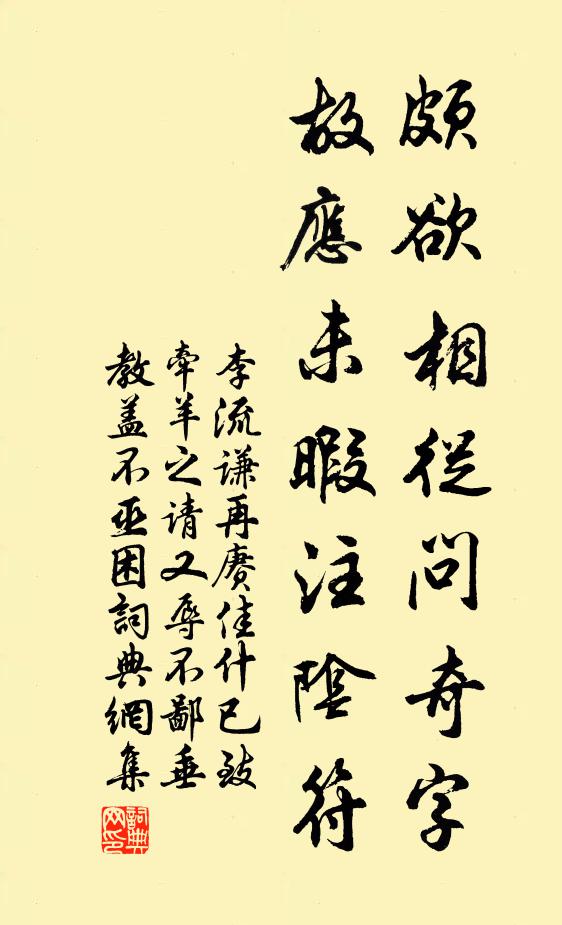 頗欲相從問奇字
故應未暇注陰符
李流谦再赓佳什已致
牵羊之请又辱不鄙垂
教盖不亟困詞典網集
詞典网印